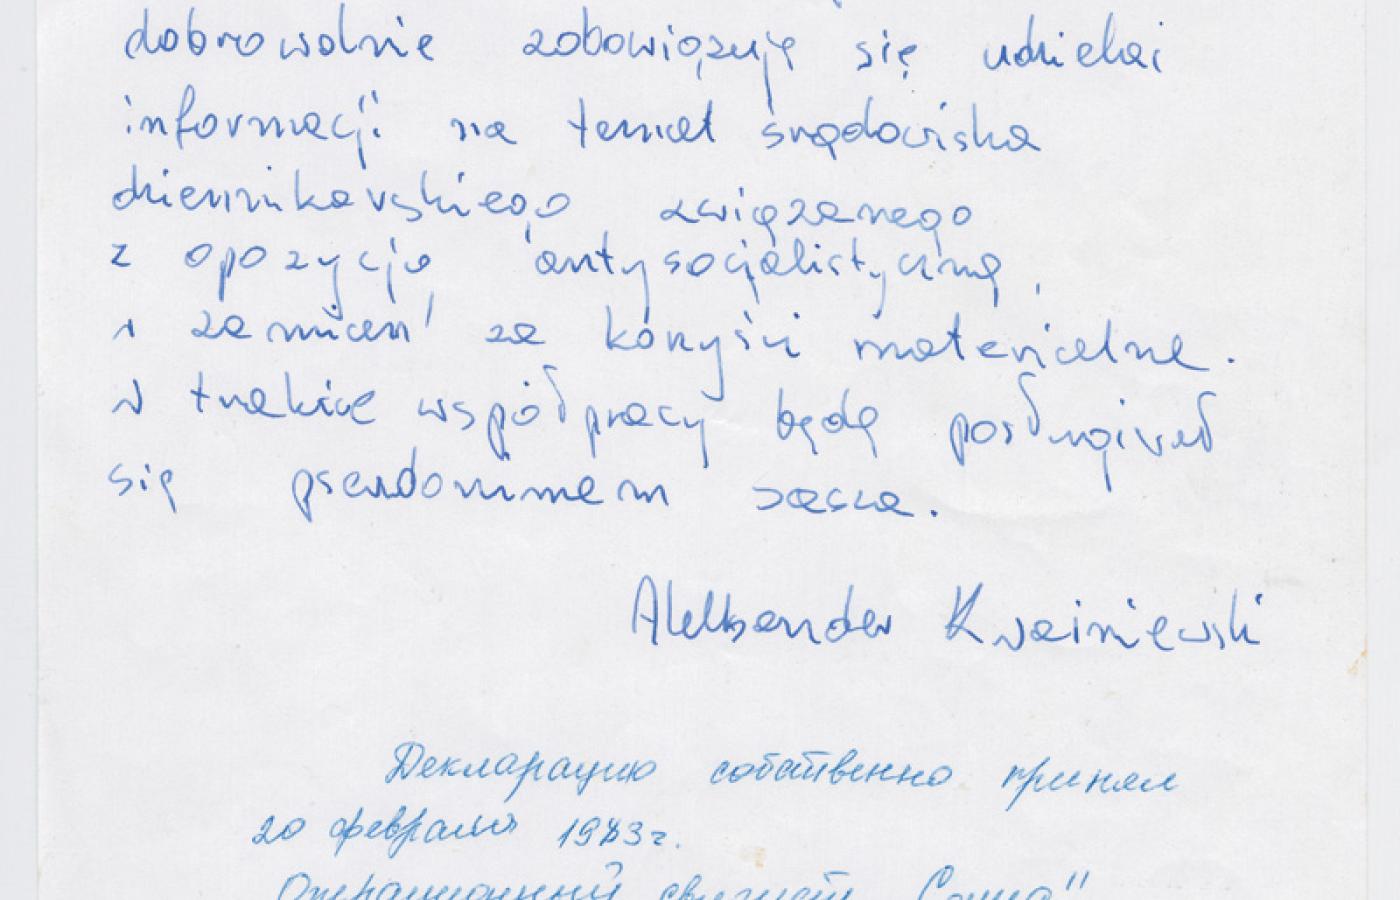 dobrowolnie zobowiązuję się udzielać
informacji na temat środowiska
dziennikarskiego związanego
z opozycją antysocjalistyczną,
w zamian za korzyści materialne.
W trakcie współpracy będę posługiwał
się pseudonimem Sasza.
Aleksander Kwaśniewski
Декларацию собственно принял
20 февраля 1983г.
Оперативный "Саша"